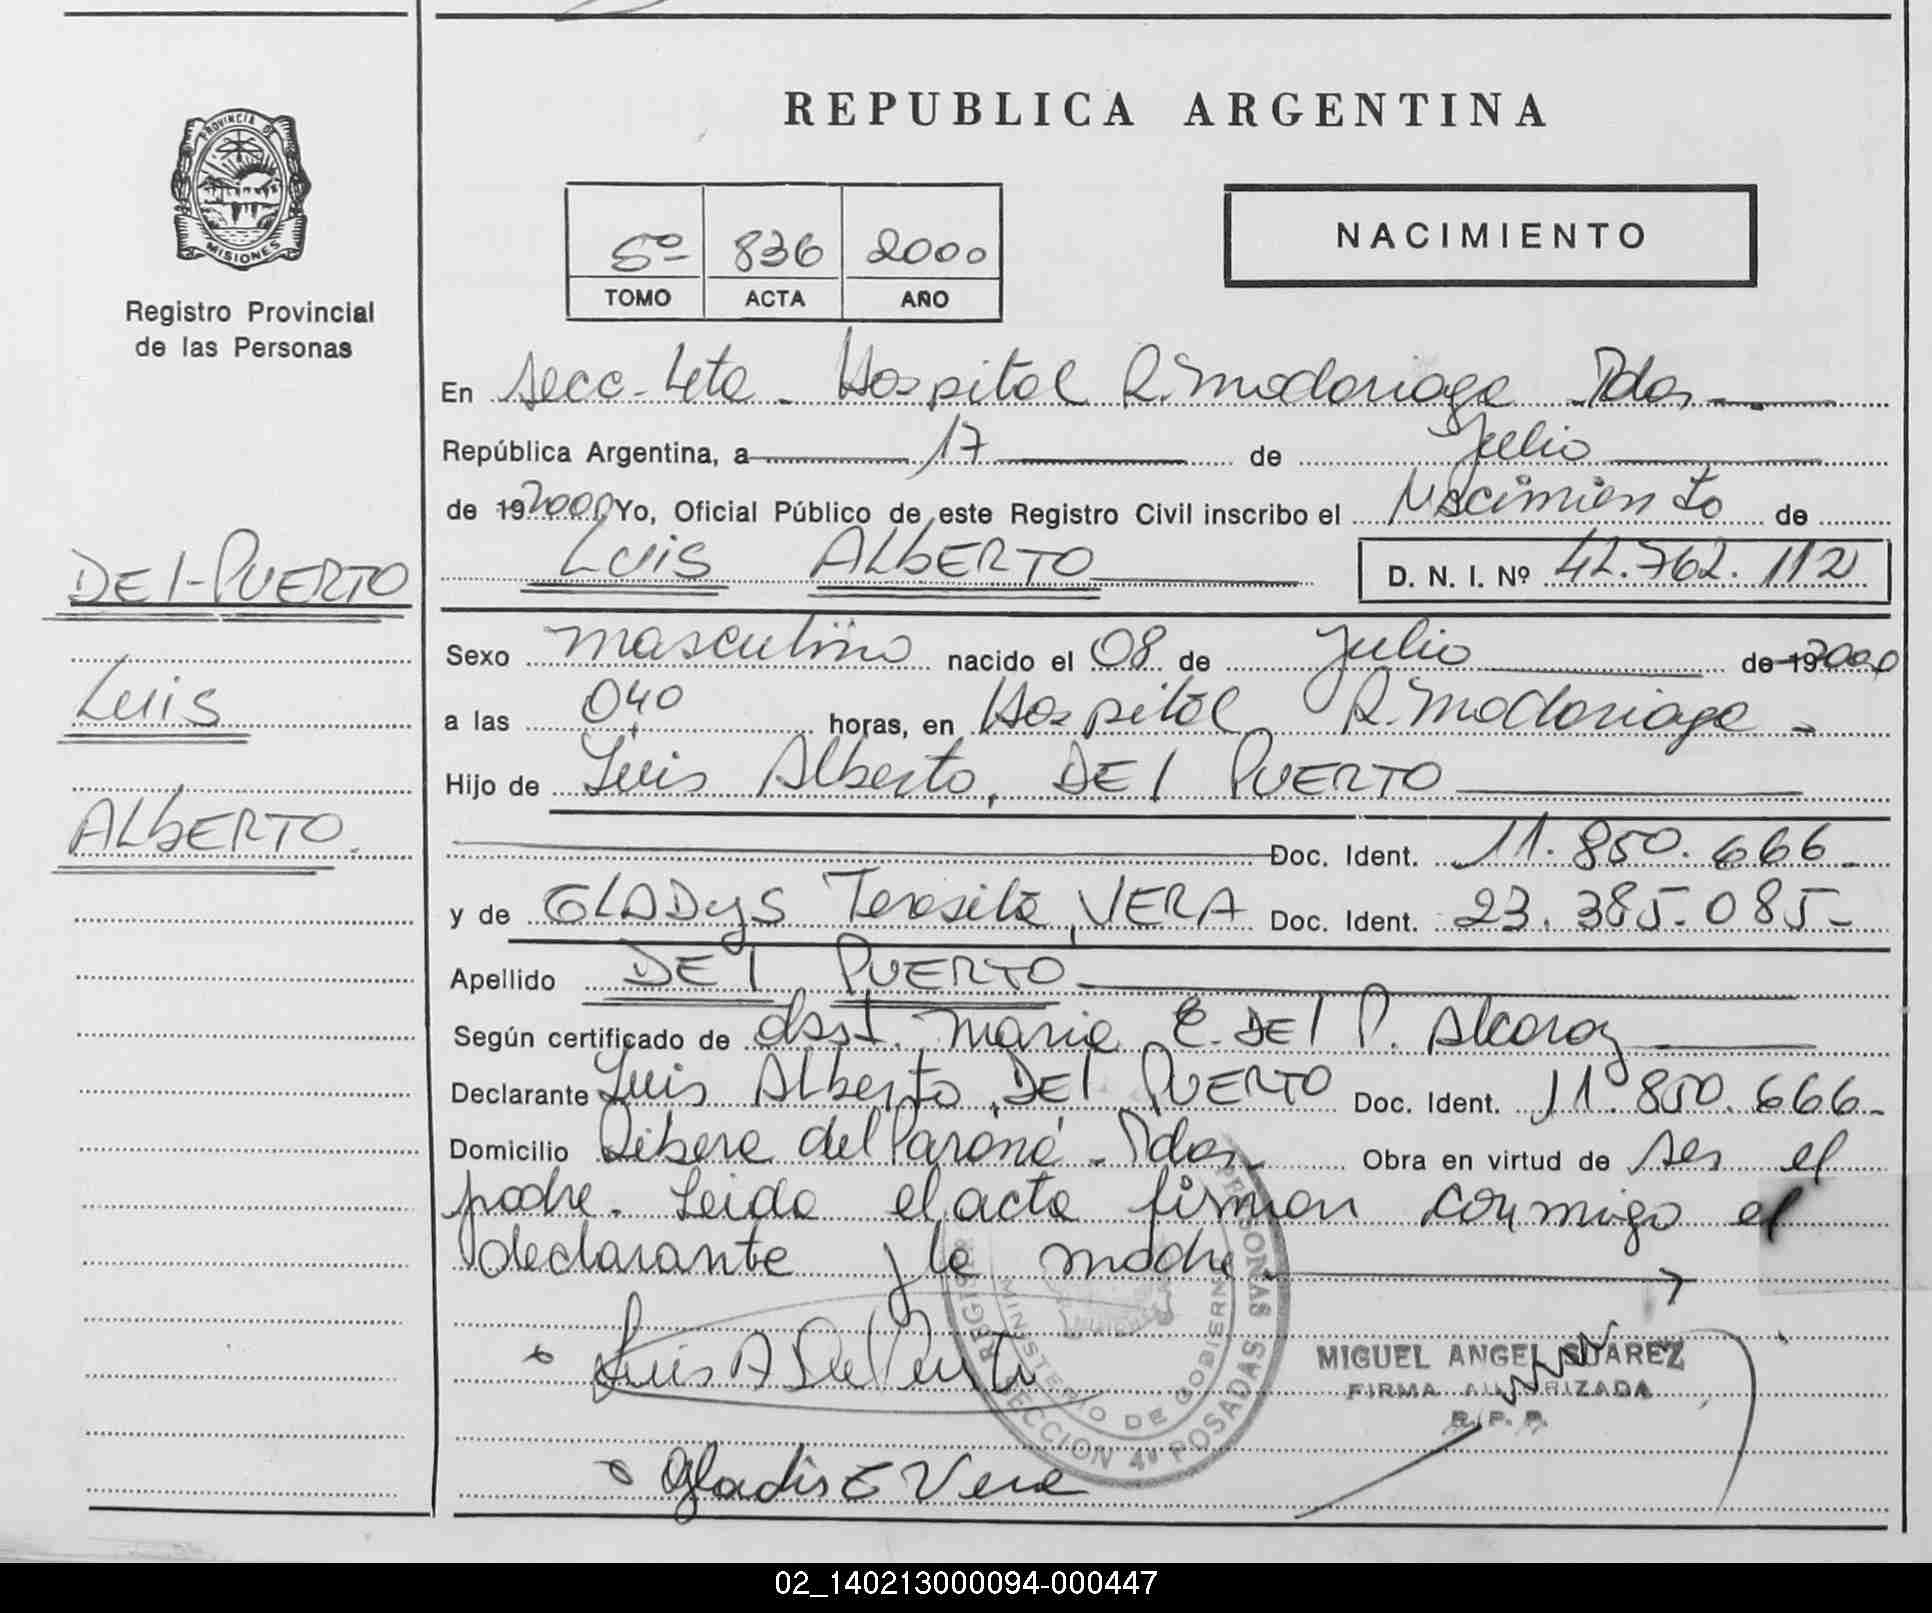 REPUBLICA ARGENTINA
PROVINCIA DE
MISIONES
Registro Provincial
de las Personas
5º 836 2000
TOMO ACTA AÑO
NACIMIENTO
En Secc. 4ta. Hospital R. Madariaga Pdas
República Argentina, a 17 de Julio
de 19 2000 Yo, Oficial Público de este Registro Civil inscribo el Nacimiento de
LUIS ALBERTO D. N. I. Nº 42.762.112
DEL PUERTO
Luis
ALBERTO.
Sexo masculino nacido el 08 de Julio de 19 2000
a las 040 horas, en Hospital R. Madariaga
Hijo de Luis Alberto, DEL PUERTO
Doc. Ident. 11.850.666
y de GLADyS Teresita, VERA Doc. Ident. 23.385.085
Apellido DEL PUERTO
Según certificado de obst. Maria E. DEL P. Alcaraz
Declarante Luis Alberto, DEL PUERTO Doc. Ident. 11.850.666
Domicilio Ribera del Paraná - Pdas Obra en virtud de ser el
padre. Leida el acta firman conmigo el
declarante y la madre
Luis A Del Puerto
MIGUEL ANGEL SUAREZ
FIRMA AUTORIZADA
R. P. P.
PERSONAS
MINISTERIO DE GOBIERNO
SECCION 4ª POSADAS
Gladis E Vera
02_140213000094-000447